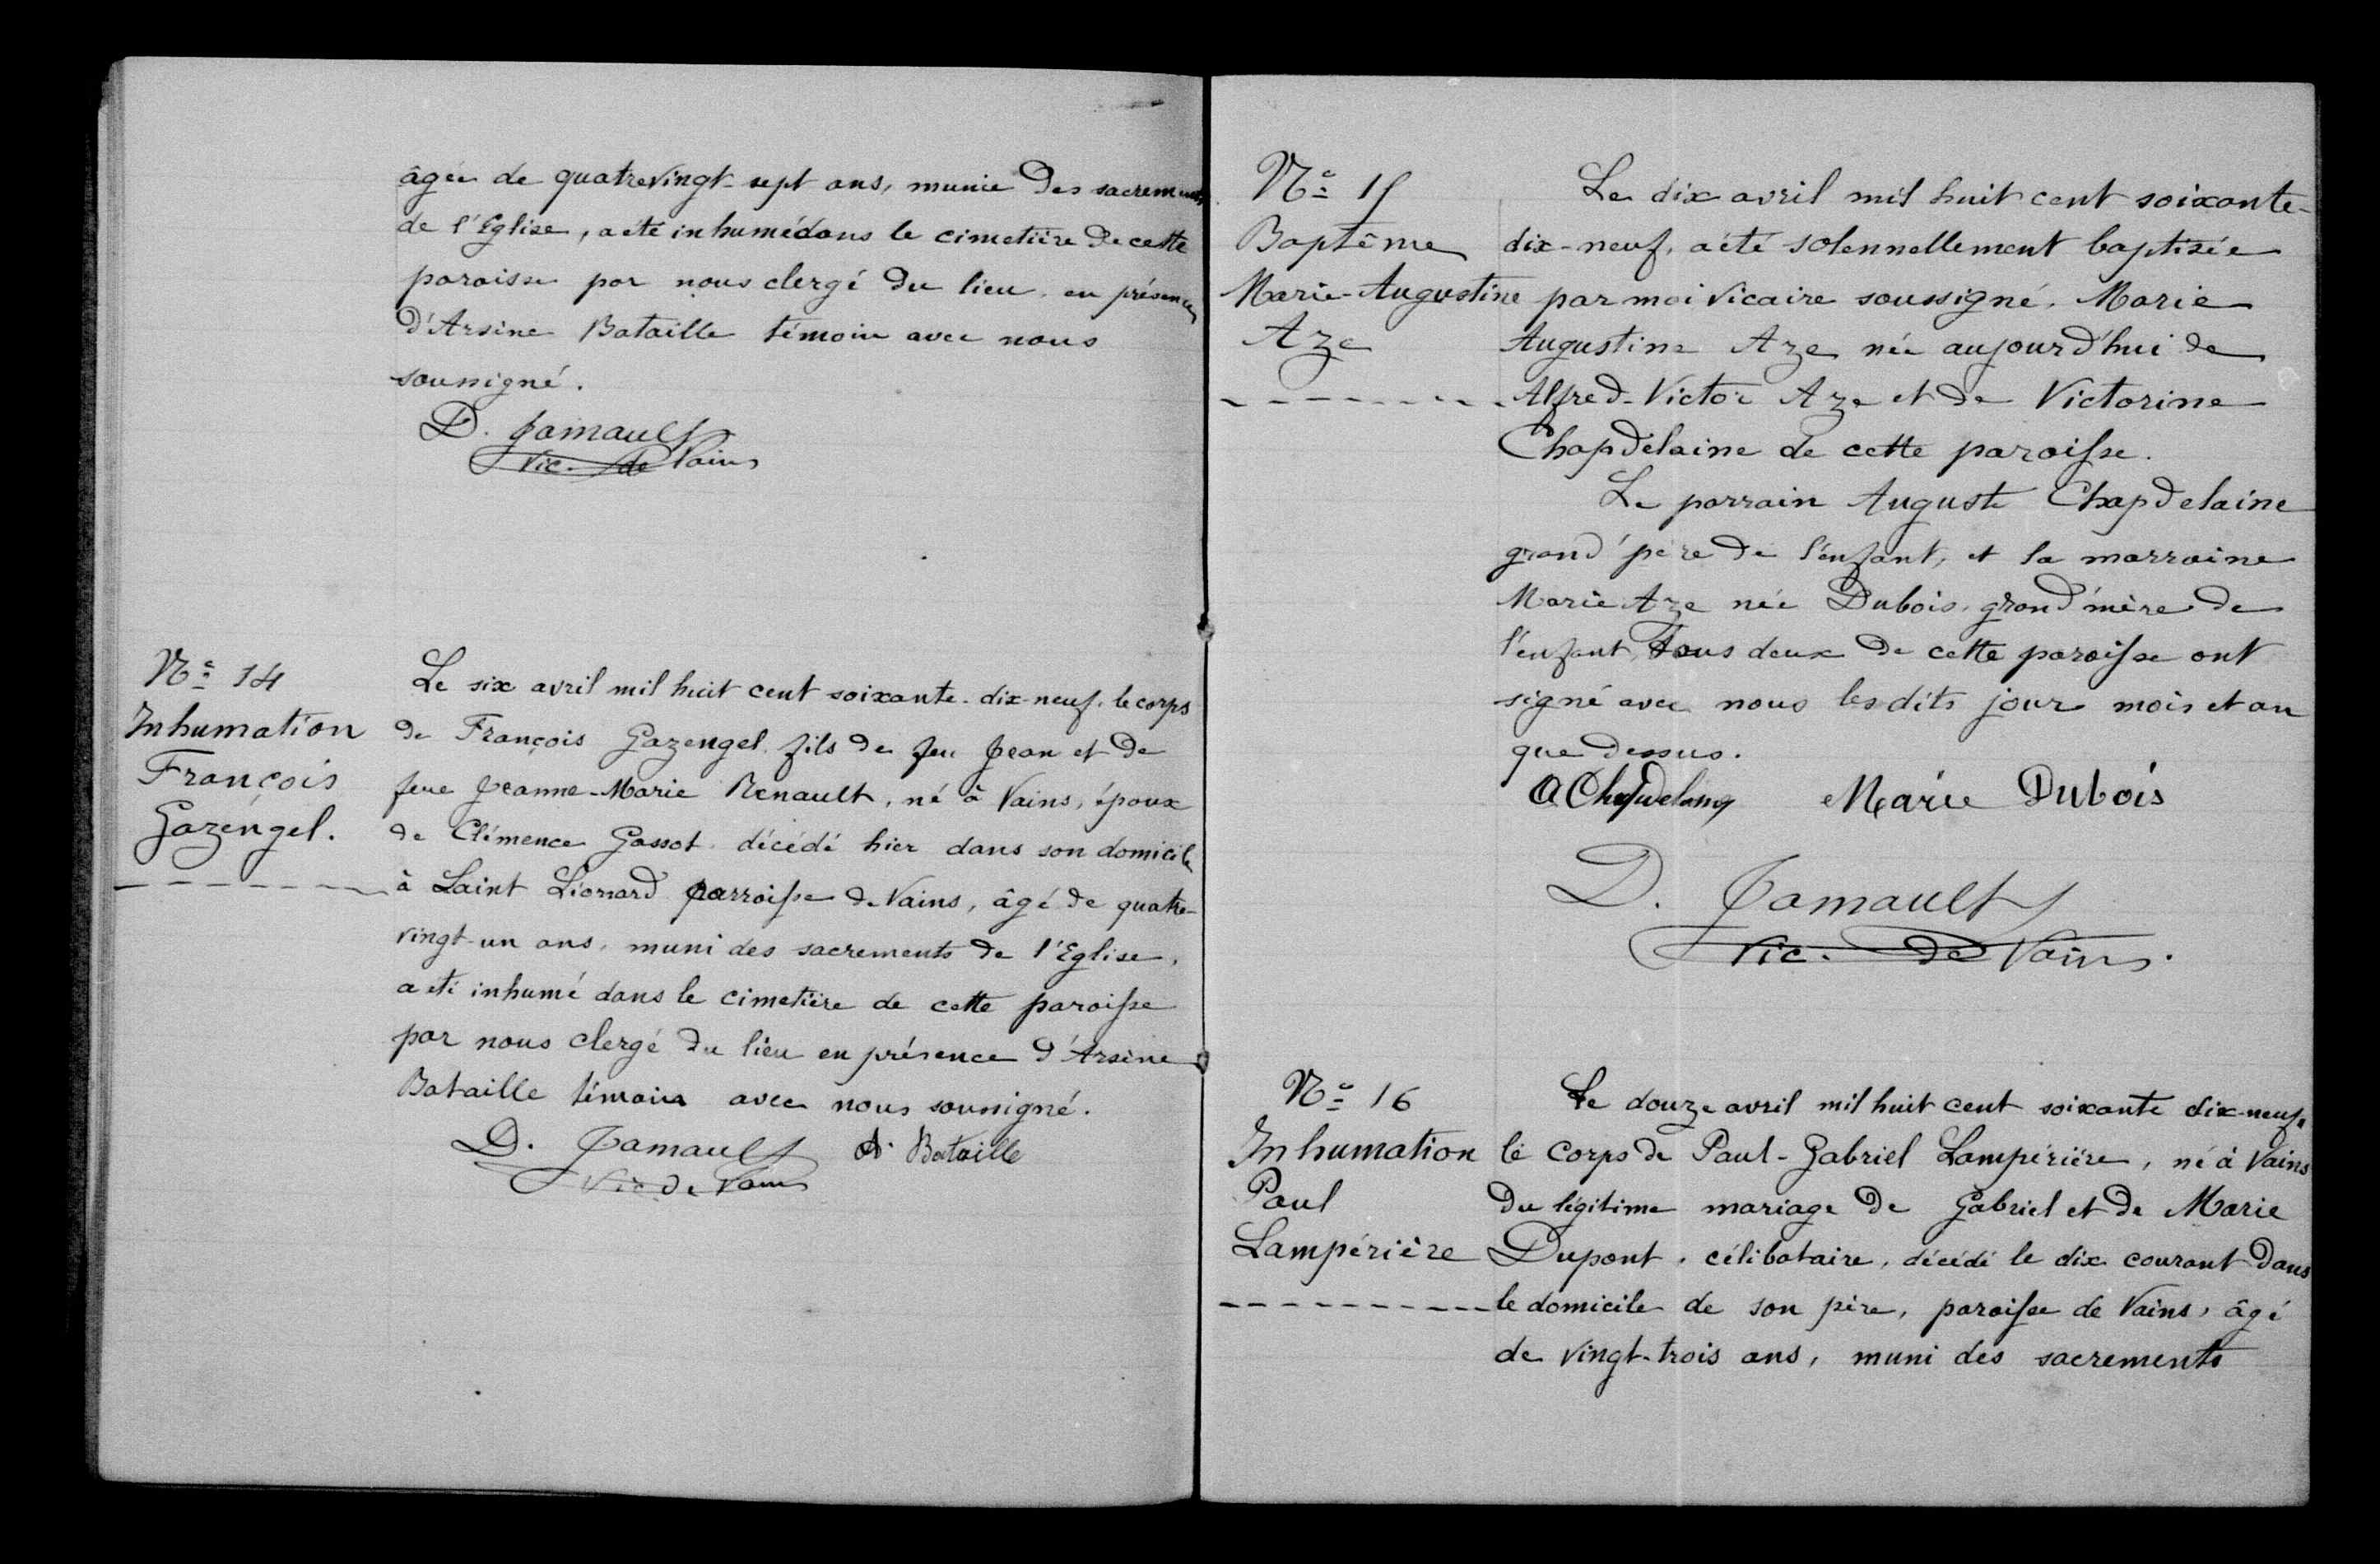 âgée de quatrevingt-sept ans, munie des sacrements
de l'Eglise, a été inhumé dans le cimetière de cette
paroisse par nous clergé du lieu, en présence
d'Arsène Bataille témoin avec nous
soussigné.
D. Jamault
Vic. de Vains
Nº 14
Inhumation
François
Gazengel.
Le six avril mil huit cent soixante-dix-neuf, le corps
de François Gazengel, fils de feu Jean et de
feue Jeanne-Marie Renault, né à Vains, époux
de Clémence Gassot décédé hier dans son domicile
à Saint Léonard parroisse de Vains, âgé de quatre-
vingt-un ans, muni des sacrements de l'Eglise,
a été inhumé dans le cimetière de cette paroisse
par nous clergé du lieu en présence d'Arsène
Bataille témoin avec nous soussigné.
D. Jamault A. Bataille
Vic. de Vains
Nº 15
Baptême
Marie-Augustine
Aze
Le dix avril mil huit cent soixante-
dix-neuf, a été solennellement baptisée
par moi vicaire soussigné, Marie
Augustine Aze née aujourd'hui de
Alfred-Victor Aze et de Victorine
Chapdelaine de cette paroisse.
Le parrain Auguste Chapdelaine
grand'père de l'enfant, et la marraine
Marie Aze née Dubois, grand'mère de
l'enfant, Tous deux de cette paroisse ont
signé avec nous les dits jour mois et an
que dessus.
Marie Dubois
D. Jamault
Vic. de Vains.
Nº 16
Inhumation
Paul
Lampérière
Le douze avril mil huit cent soixante dix-neuf,
le corps de Paul-Gabriel Lampérière, né à Vains
du légitime mariage de Gabriel et de Marie
Dupont, célibataire, décédé le dix courant dans
le domicile de son père, paroisse de Vains, âgé
de vingt-trois ans, muni des sacrements